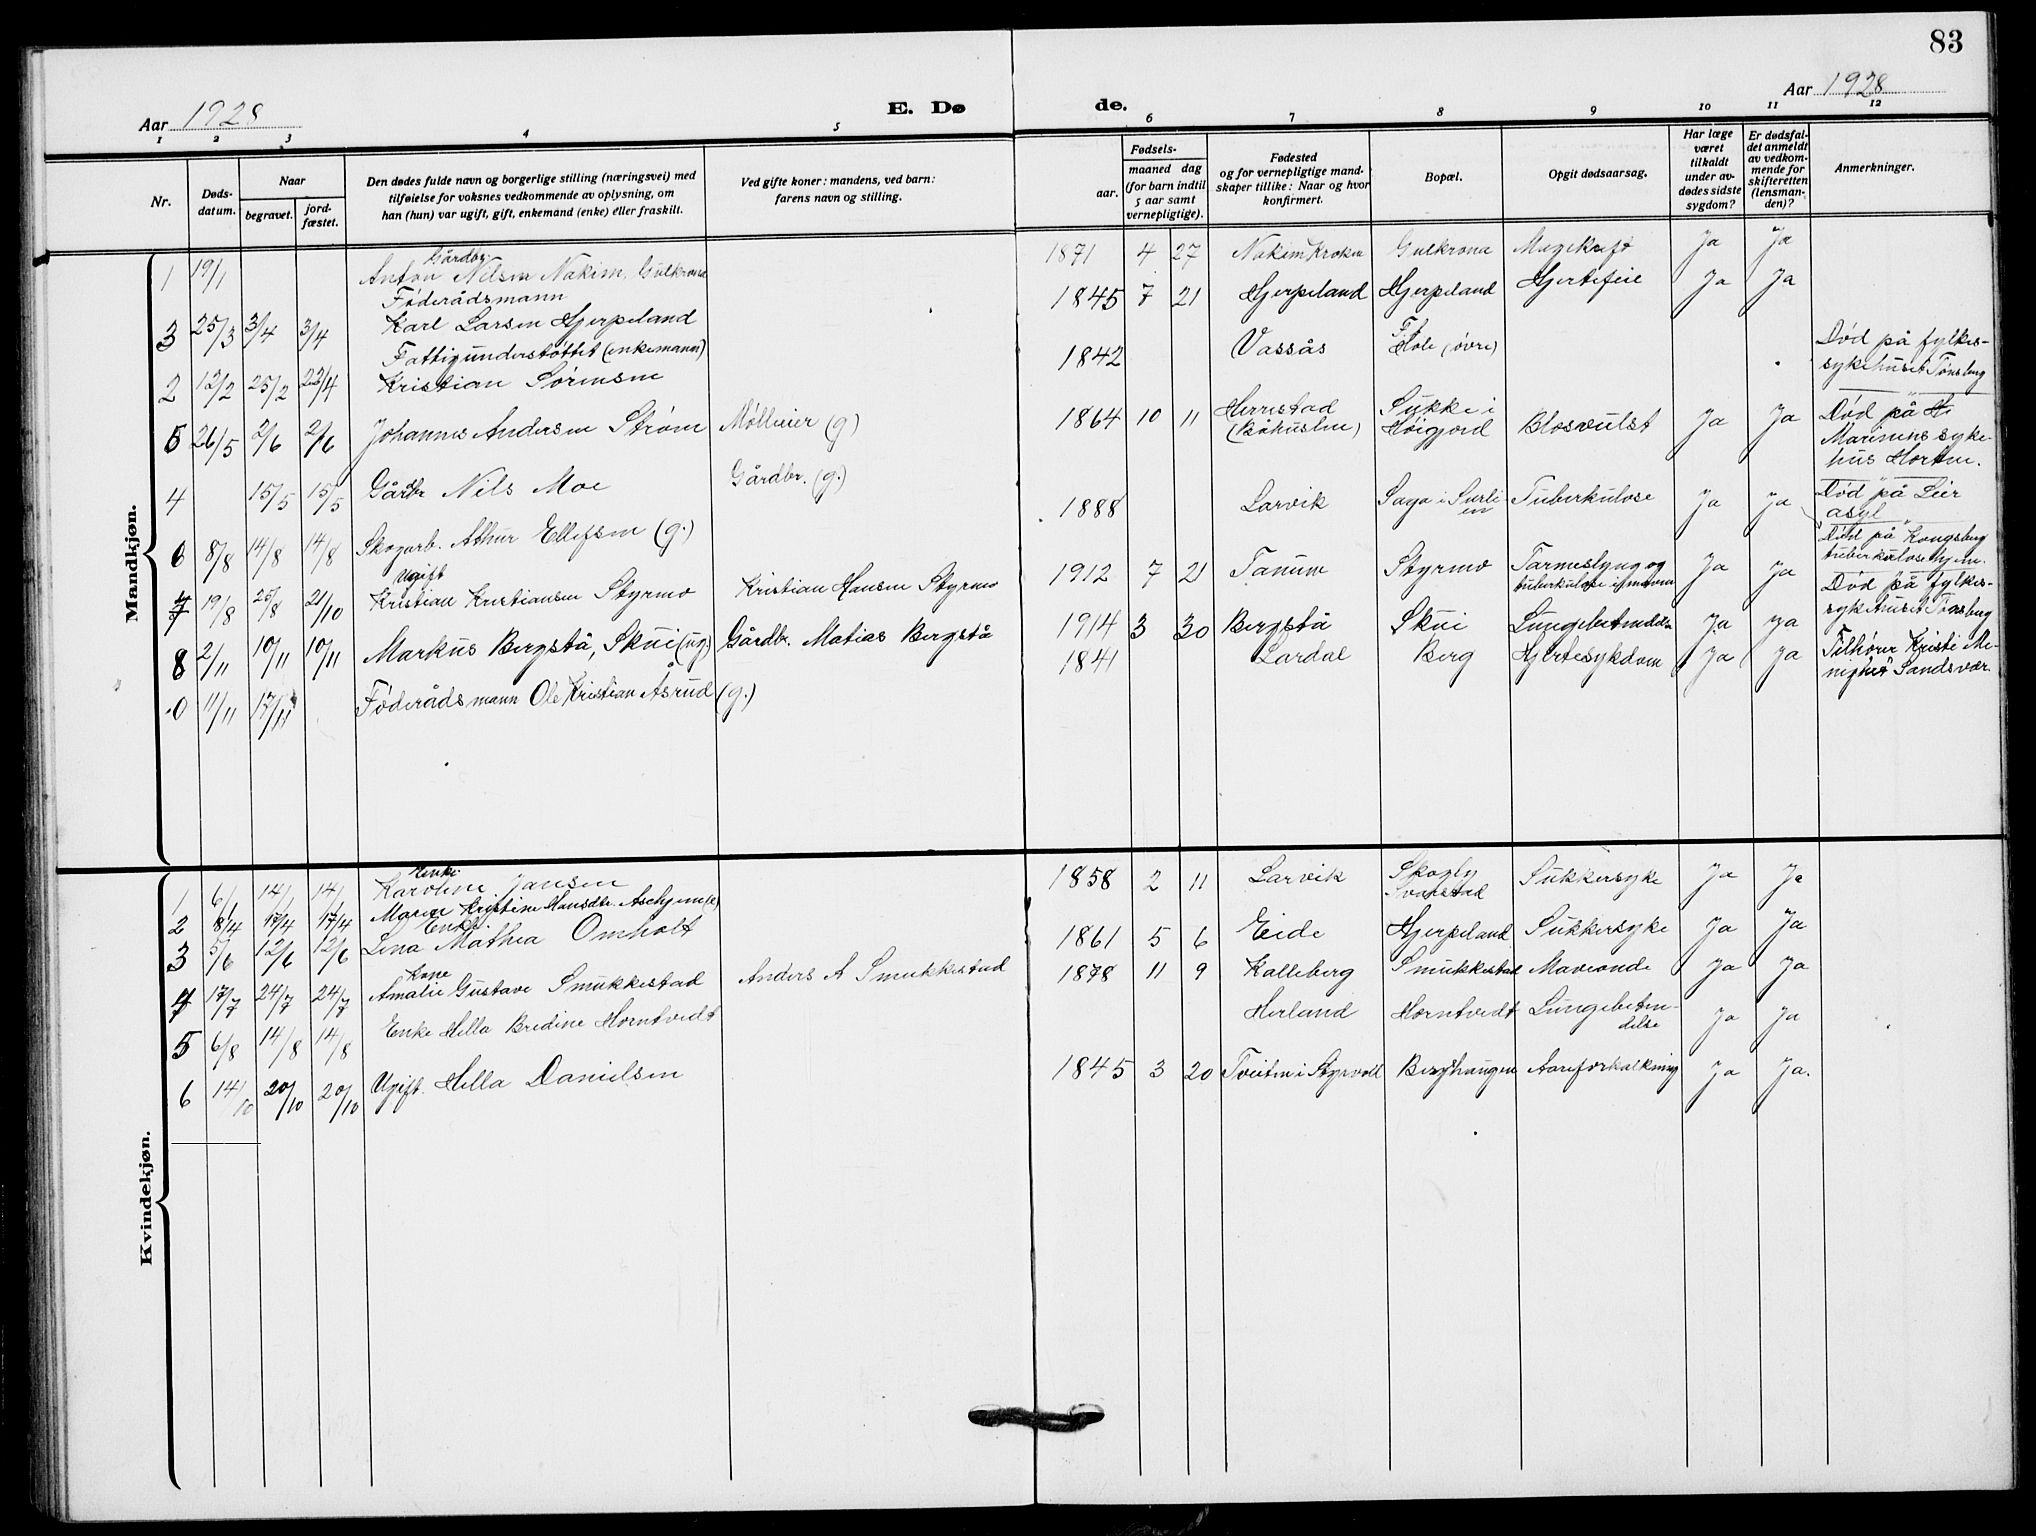 83
Aar 1928
E. Dø
de.
Aar 1928
1 2 3 4 5 6 7 8 9 10 11 12
Nr.
Døds-
datum.
Naar
begravet.
jord-
fæstet.
Den dødes fulde navn og borgerlige stilling (næringsvei) med
tilføielse for voksnes vedkommende av oplysning, om
han (hun) var ugift, gift, enkemand (enke) eller fraskilt.
Ved gifte koner: mandens, ved barn:
farens navn og stilling.
Fødsels-
aar.
maaned dag
(for barn indtil
5 aar samt
vernepligtige).
Fødested
og for vernepligtige mand-
skaper tillike: Naar og hvor
konfirmert.
Bopæl.
Opgit dødsaarsag.
Har læge
været
tilkaldt
under av-
dødes sidste
sygdom?
Er dødsfal-
det anmeldt
av vedkom-
mende for
skifteretten
(lensman-
den)?
Anmerkninger.
Mandkjøn.
Gårdbr.
1 19/1 Anton Nilsen Nakim, Gulkrona 1871 4 27 Nakim Kroken Gulkrona Ja Ja
Føderådsmann
3 25/3 3/4 3/4 Karl Larsen Hjerpeland 1845 7 21 Hjerpeland Hjerpeland Hjertefeil Ja Ja
Fattigunderstøttet (enkemann)
2 12/2 25/2 22/4 Kristian Sørensen 1842 Vassås Hole (øvre) Død på fylkes-
sykehuset Tønsberg
5 26/5 2/6 2/6 Johannes Andersen Strøm Mølleier (g) 1864 10 11 Herrestad
(Båhuslen) Sukke i
Høigjord Blosvulst Ja Ja Død på
Marinens syke-
hus Horten.
4 15/5 15/5 Gårdbr Nils Moe Gårdbr. (g.) 1888 Larvik Saga i Svarli Tuberkulose Ja Ja Død på Lier
asyl
6 8/8 14/8 14/8 Skogarb. Athur Ellefsen (g.) Død på Kongsberg
tuberkulosehjem.
Ugift
7 19/8 25/8 21/10 Kristian Kristiansen Styrmo Kristian Hansen Styrmo 1912 7 21 Tanum Styrmo Tarmeslyng og
tuberkulose i maven Ja Ja Død på fylkes-
sykehuset Tønsberg
8 2/11 10/11 10/11 Markus Bergstå, Skui (ug.) Gårdbr. Matias Bergstå 1914 3 30 Bergstå Skui Lungebetendelse Ja Ja
0 11/11 17/11 Føderådsmann Ole Kristian Åsrud (g.) 1841 Lardal Berg Hjertesykdom Ja Ja Tilhører Kristi Me-
nighet Sandsvær
Kvindekjøn.
Enke
1 6/1 14/1 14/1 Karoline Jansen 1858 2 11 Larvik Skogly
Svarstad Sukkersyke Ja Ja
2 8/4 17/4 17/4 Maren Kristine Hansdtr. Aschjem (e)
Enke
3 5/6 12/6 12/6 Lena Mathea Omholt 1861 5 6 Eide Hjerpeland Sukkersyke Ja Ja
Kone
4 17/7 24/7 24/7 Amalie Gustave Smukkestad Anders A Smukkestad 1878 11 9 Kalleberg Smukkestad Maveonde Ja Ja
5 6/8 14/8 14/8 Enke Hella Bredine Horntvedt Herland Horntvedt Lungebeten-
delse Ja Ja
6 14/10 20/10 20/10 Ugift. Hella Danielsen 1845 3 20 Tveiten i Styrvoll Berghaugen Aareforkalkning Ja Ja.